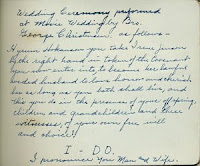 Wedding Ceremony preformed
at Movie Wedding by Bro.
George Christensen as follows -
Hyrum Hokanson you take Irene Jensen
by the right hand in token of the covenant
you now enter into to become her lawful
wedded husband to love honor and cherish
her as long as you both shall live, and
this you do in the presence of your offspring,
children and grandchildren and these
witnesses of your own free will
and choice?
I - DO.
I pronounce you Man and Wife.